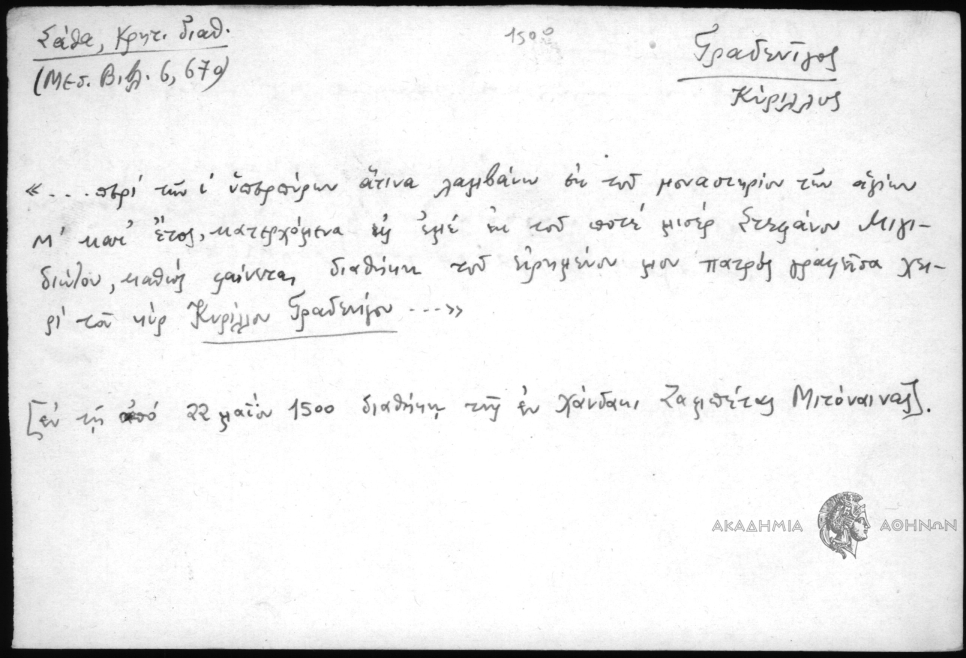 Σάθα, Κρητ. διαθ.
(Μεσ. Βιβλ. 6, 679)
1500
Γραδενῖγος
Κύριλλος
«... περὶ τῶν ι´ ὑπερπύρων ἅτινα λαμβάνω ἐκ τοῦ μοναστηρίου τῶν ἁγίων
Μ´ κατ᾽ ἔτος, κατερχόμενα εἰς ἐμὲ ἐκ τοῦ ποτὲ μισὲρ Στεφάνου Μιγι-
διώτου, καθὼς φαίνεται διαθήκη τοῦ εἰρημένου μου πατρὸς γραφεῖσα χει-
ρὶ τοῦ κὺρ Κυρίλλου Γραδενίγου ...»
[ἐν τῇ ἀπό 22 μαΐου 1500 διαθήκῃ τῆς ἐν Χάνδακι Ζαμπέτας Μιτόναινας].
ΑΚΑΔΗΜΙΑ ΑΘΗΝΩΝ